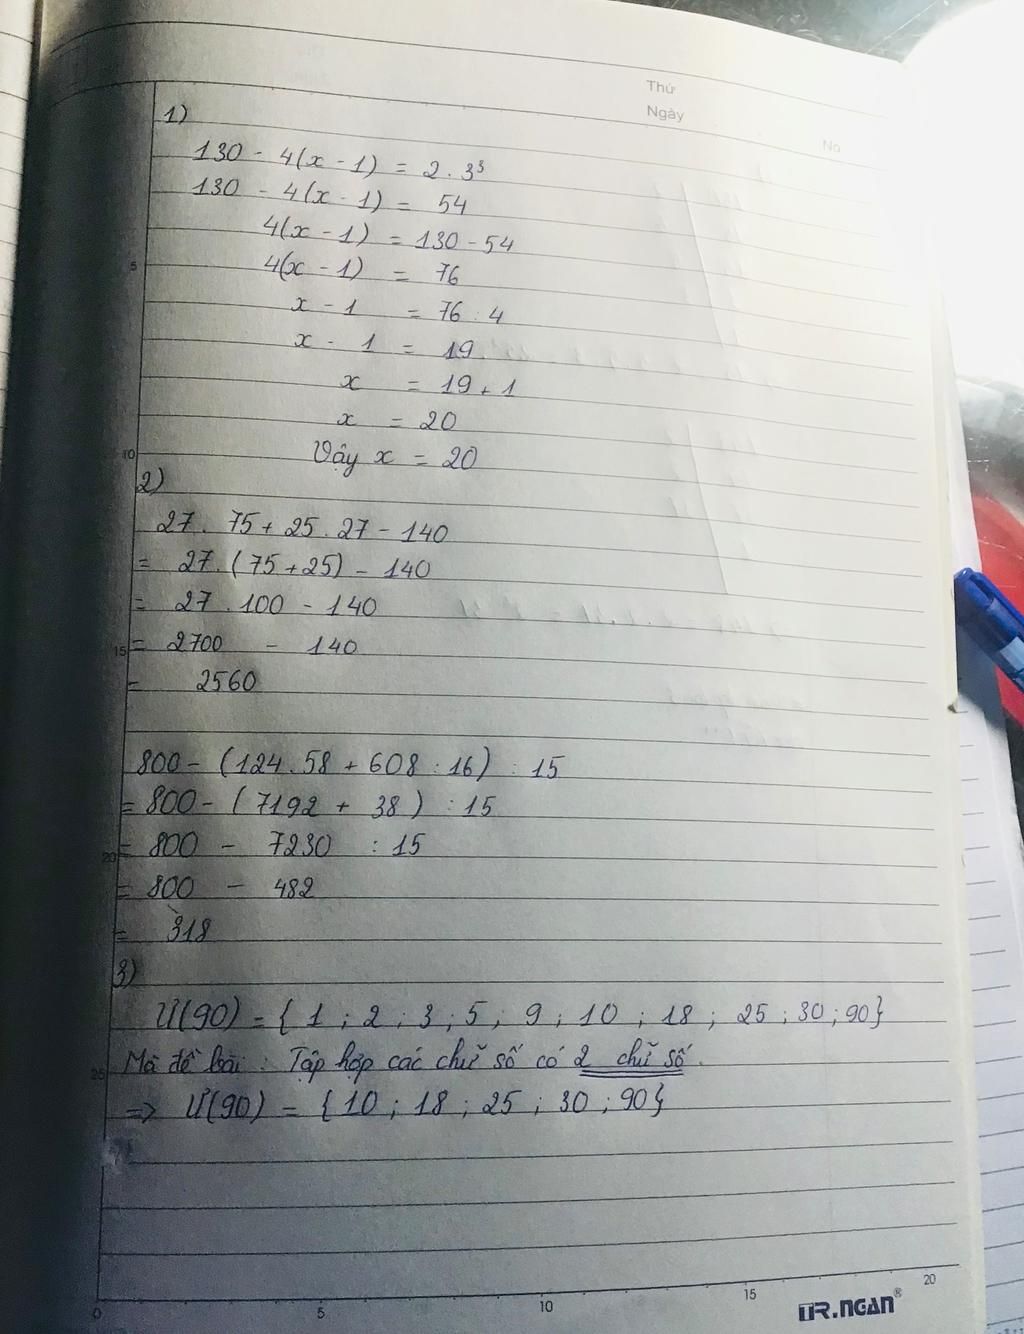 Thứ
Ngày
No
1)
130 - 4(x - 1) = 2 . 3³
130 - 4(x - 1) = 54
4(x - 1) = 130 - 54
4(x - 1) = 76
x - 1 = 76 : 4
x - 1 = 19
x = 19 + 1
x = 20
Vây x = 20
2)
27 . 75 + 25 . 27 - 140
= 27 . (75 + 25) - 140
= 27 . 100 - 140
= 2700 - 140
= 2560
800 - (124 . 58 + 608 : 16) : 15
= 800 - (7192 + 38) : 15
= 800 - 7230 : 15
= 800 - 482
= 318
3)
Ư(90) = { 1 ; 2 ; 3 ; 5 ; 9 ; 10 ; 18 ; 25 ; 30 ; 90}
Mà đề bài : Tập hợp các chữ số có 2 chữ số.
=> Ư(90) = {10 ; 18 ; 25 ; 30 ; 90}
5
10
15
20
25
0 5 10 15 20
TR.NGAN®